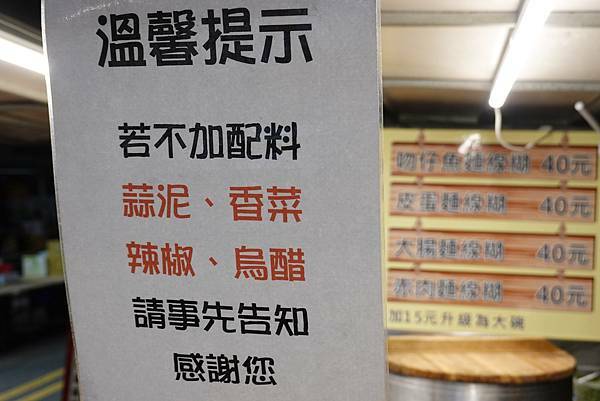 溫馨提示
若不加配料
蒜泥、香菜
辣椒、烏醋
請事先告知
感謝您
吻仔魚麵線糊 40元
皮蛋麵線糊 40元
大腸麵線糊 40元
赤肉麵線糊 40元
加15元升級為大碗